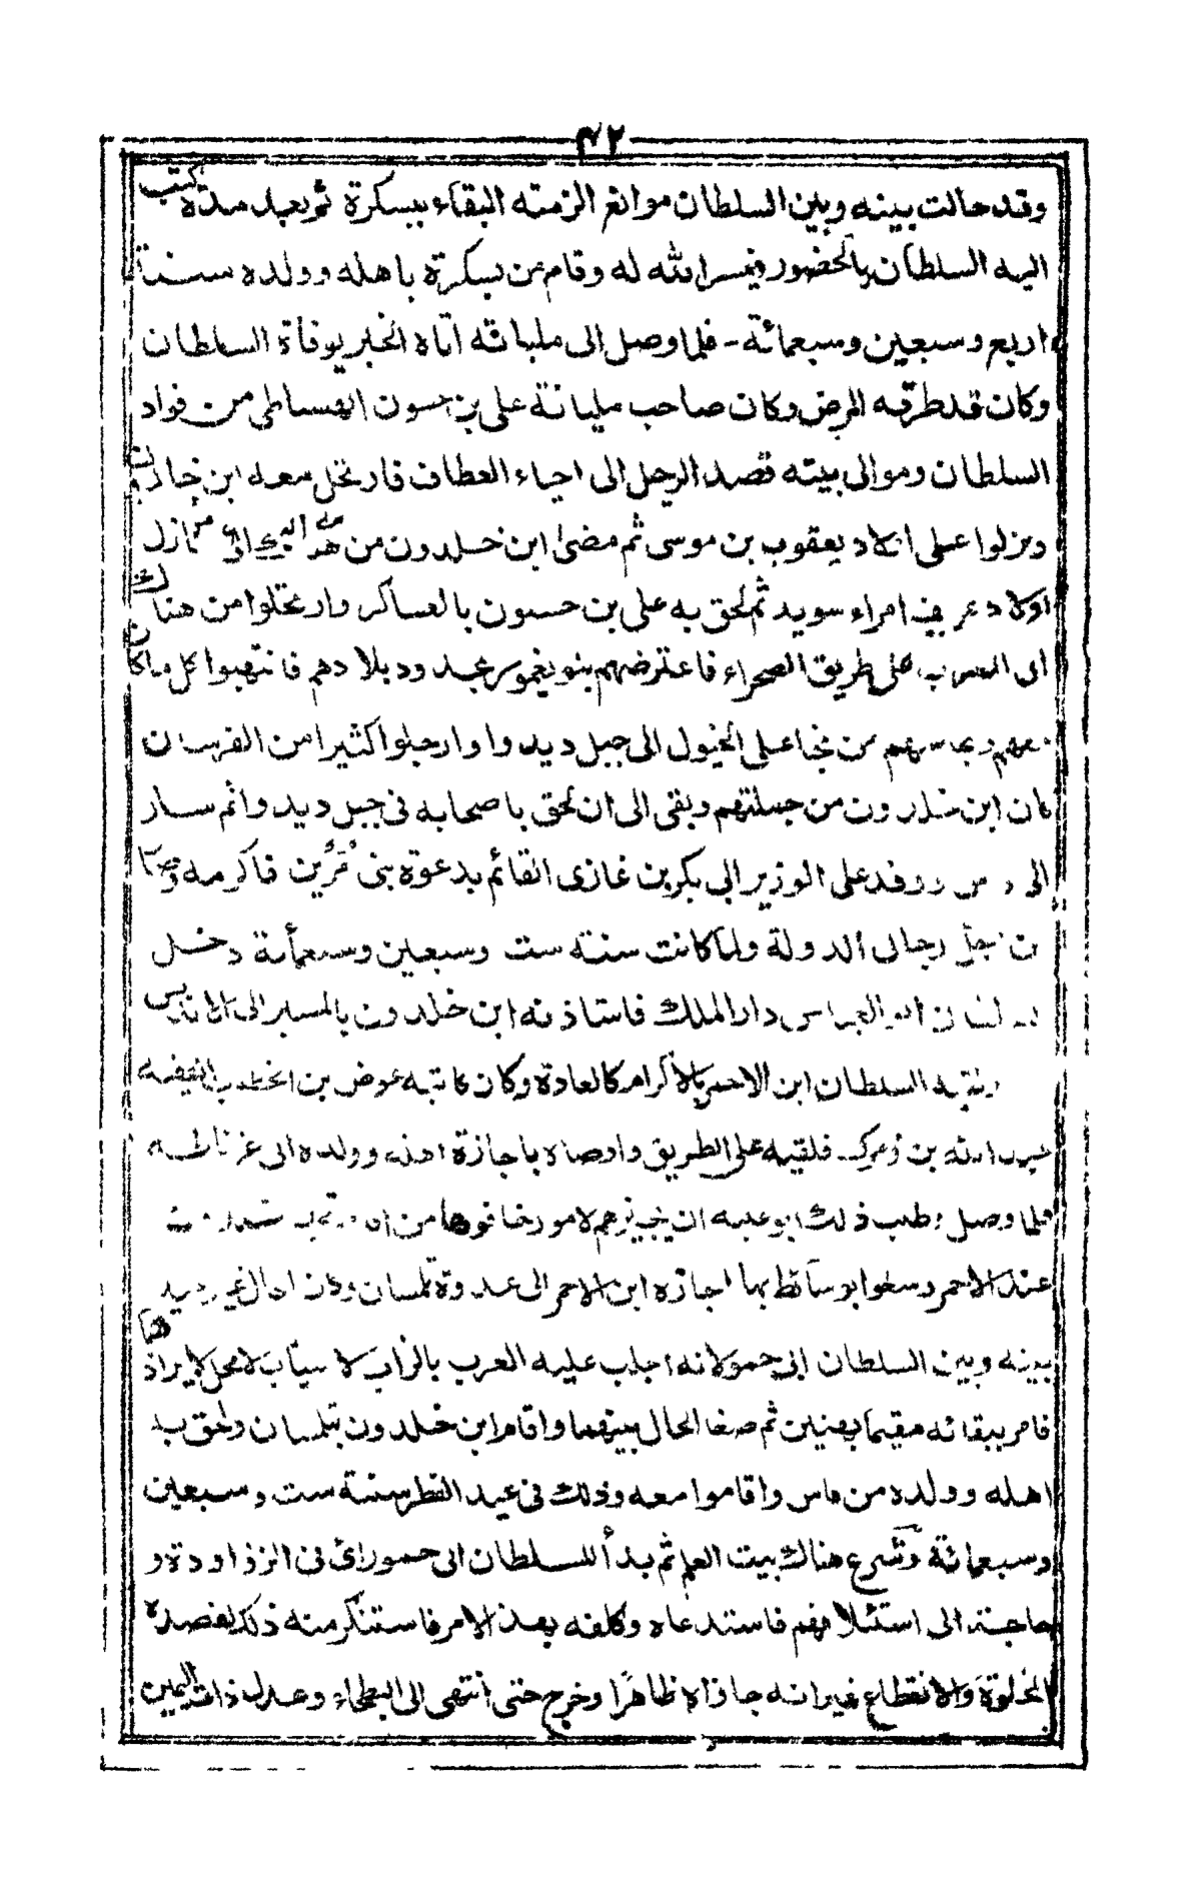 ٤٢
وقد حالت بينه وبين السلطان موانع الزمته البقاء ببسكرة ثم بعد مدة كتب
اليه السلطان بالحضور فيسر الله له وقام من بسكرة باهله وولده سنة
اربع وسبعين وسبعمائة - فلما وصل الى مليانة اتاه الخبر بوفاة السلطان
وكان قد طرقه المرض وكان صاحب مليانة على بن حسون من قواد
السلطان وموالى بيته قصد الرحل الى احياء العطاف فارتحل معه ابن
ونزلوا على اولاد يعقوب بن موسى ثم مضى ابن خلدون من منازل
اولاد عريف امراء سويد ثم لحق به على بن حسون بالعساكر وارتحلوا من هناك
الى المغرب على طريق الصحراء فاعترضهم بنو يغمور بلادهم فانتهبوا كل ما كان
معهم من نجا على الخيول الى جبل ديدوا وارجلوا كثيرا من الفرسان
كان ابن خلدون من جملتهم وبقى الى ان لحق باصحابه فى جبل ديدوا ثم سار
الى ووفد على الوزير ابى بكر بن غازى القائم بدعوة بنى مرين فاكرمه
رجال الدولة ولما كانت سنة ست وسبعين وسبعمأئة دخل
ابو العباس دار الملك فاستاذنه ابن خلدون بالمسير الى الاندلس
السلطان ابن الاحمر بالاكرام كالعادة وكان كاتبه عوض بن الخطيب الفقيه
الله بن فلقيه على الطريق واوصاه باجازة اهله وولده الى غرناطة
فلما وصل وطلب ذلك ان يجيزهم لامور خافوها من
عند الاحمر وسعوا بها اجازه ابن الاحمر الى عدوة تلمسان وكان الحال غير
بينه وبين السلطان ابى حمو لانه اجلب عليه العرب بالزاب
فامر ببقائه مقيما بهنين ثم صفا الحال بينهما واقام ابن خلدون بتلمسان ولحق به
اهله وولده من فاس واقاموا معه وذلك فى عيد الفطر سنة ست وسبعين
وسبعمائة وشرع هناك ببث العلم ثم بدأ للسلطان ابى حمو رائ فى الزواودة و
حاجته الى استئلافهم فاستدعاه وكلفه بهذ الامر فاستنكر منه ذلك لقصده
الخلوة والانقطاع غير انه جازاه ظاهرا وخرج حتى انتهى الى البطحاء وعدل ذات اليمين